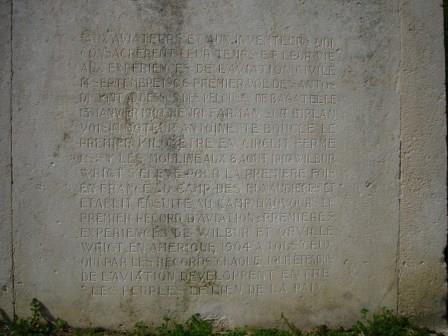 AUX AVIATEURS ET AUX INVENTEURS QUI
CONSACRERENT LEUR TEMPS ET LEUR VIE
AUX EXPERIENCES DE L'AVIATION CIVILE
SEPTEMBRE 1906 PREMIER VOL DE SANTOS
DUMONT PELOUSE DE BAGATELLE
13 JANVIER HENRI FARMAN SUR BIPLAN
VOISIN MOTEUR ANTOINETTE BOUCLE LE
PREMIER KILOMETRE EN CIRCUIT FERME
LES MOULINEAUX 8 AOUT WILBUR
WRIGT S'ELEVE POUR LA PREMIERE FOIS
EN FRANCE AU CAMP DES HUNAUDIERES ET
ETABLIT ENSUITE AU CAMP D'AUVOUR LE
PREMIER RECORD D'AVIATION PREMIERES
EXPERIENCES DE WILBUR ET ORVILLE
WRIGT EN AMERIQUE 1904 A TOUS CEUX
QUI PAR LES RECORDS CHAQUE JOUR ETENDUS
DE L'AVIATION DEVELOPPENT ENTRE
LES PEUPLES LE LIEN DE LA PAIX